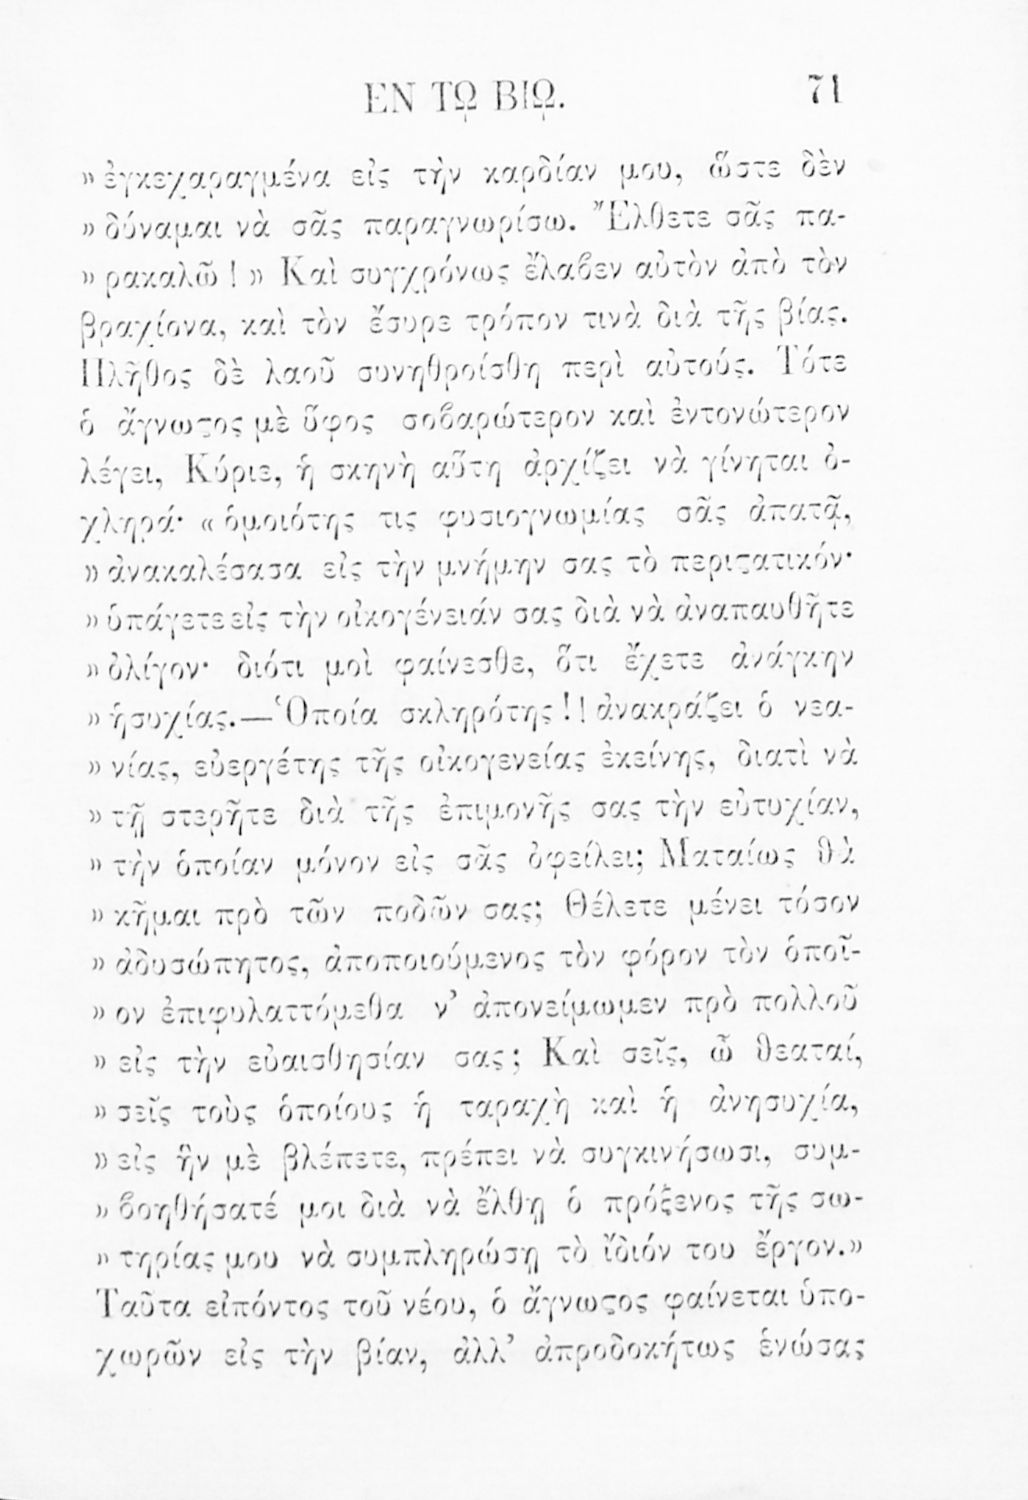 ΕΝ Τῼ ΒΙῼ. 71
» ἐγκεχαραγμένα εἰς τὴν καρδίαν μου, ὥστε δὲν
» δύναμαι νὰ σᾶς παραγνωρίσω. Ἔλθετε σᾶς πα-
» ρακαλῶ ! » Καὶ συγχρόνως ἔλαβεν αὐτὸν ἀπὸ τὸν
βραχίονα, καὶ τὸν ἔσυρε τρόπον τινὰ διὰ τῆς βίας.
Πλῆθος δὲ λαοῦ συνηθροίσθη περὶ αὐτούς. Τότε
ὁ ἄγνωςος μὲ ὕφος σοβαρώτερον καὶ ἐντονώτερον
λέγει, Κύριε, ἡ σκηνὴ αὕτη ἀρχίζει νὰ γίνηται ὀ-
χληρά· « ὁμοιότης τις φυσιογνωμίας σᾶς ἀπατᾷ,
» ἀνακαλέσασα εἰς τὴν μνήμην σας τὸ περιςατικόν·
» ὑπάγετε εἰς τὴν οἰκογένειάν σας διὰ νὰ ἀναπαυθῆτε
» ὀλίγον· διότι μοὶ φαίνεσθε, ὅτι ἔχετε ἀνάγκην
» ἡσυχίας.—Ὁποία σκληρότης !! ἀνακράζει ὁ νεα-
» νίας, εὐεργέτης τῆς οἰκογενείας ἐκείνης, διατὶ νὰ
» τῇ στερῆτε διὰ τῆς ἐπιμονῆς σας τὴν εὐτυχίαν,
» τὴν ὁποίαν μόνον εἰς σᾶς ὀφείλει; Ματαίως θὰ
» κῆμαι πρὸ τῶν ποδῶν σας; Θέλετε μένει τόσον
» ἀδυσώπητος, ἀποποιούμενος τὸν φόρον τὸν ὁποῖ-
» ον ἐπιφυλαττόμεθα ν’ ἀπονείμωμεν πρὸ πολλοῦ
» εἰς τὴν εὐαισθησίαν σας; Καὶ σεῖς, ὦ θεαταί,
» σεῖς τοὺς ὁποίους ἡ ταραχὴ καὶ ἡ ἀνησυχία,
» εἰς ἣν μὲ βλέπετε, πρέπει νὰ συγκινήσωσι, συμ-
» βοηθήσατέ μοι διὰ νὰ ἔλθῃ ὁ πρόξενος τῆς σω-
» τηρίας μου νὰ συμπληρώσῃ τὸ ἴδιόν του ἔργον.»
Ταῦτα εἰπόντος τοῦ νέου, ὁ ἄγνωςος φαίνεται ὑπο-
χωρῶν εἰς τὴν βίαν, ἀλλ’ ἀπροδοκήτως ἑνώσας